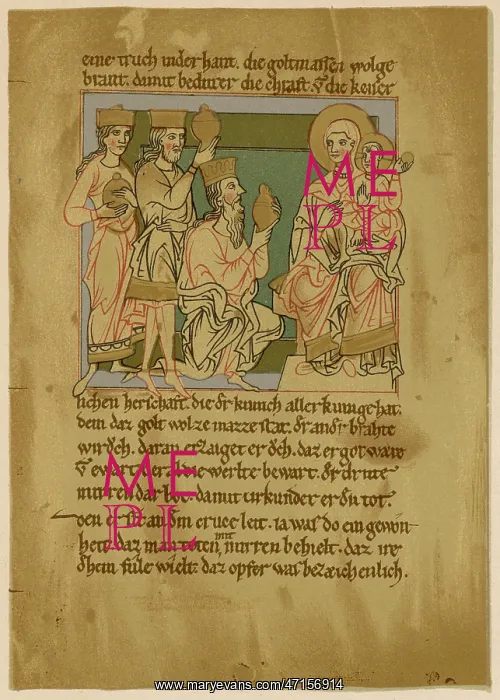 eine truch inder hant. die goltmassen wolge
brant. damit die chraft v die keiser
ME
PL
lichen herschaft. die dr kunich aller kunige hat.
dem daz golt wolze mazze stat. dr andr brahte
wirdch. daran erzaiget er dch. daz er got ware
v ewart werlte bewart. dr drite
mirren dar bot damit urkunder er dn tot.
ME
PL
den er an dm cruce leit. ia was do ein gewon
heit daz man toten mit mirren behielt. daz ire
dhein fule wielt daz opfer was bezeichenlich.
www.maryevans.com/47156914